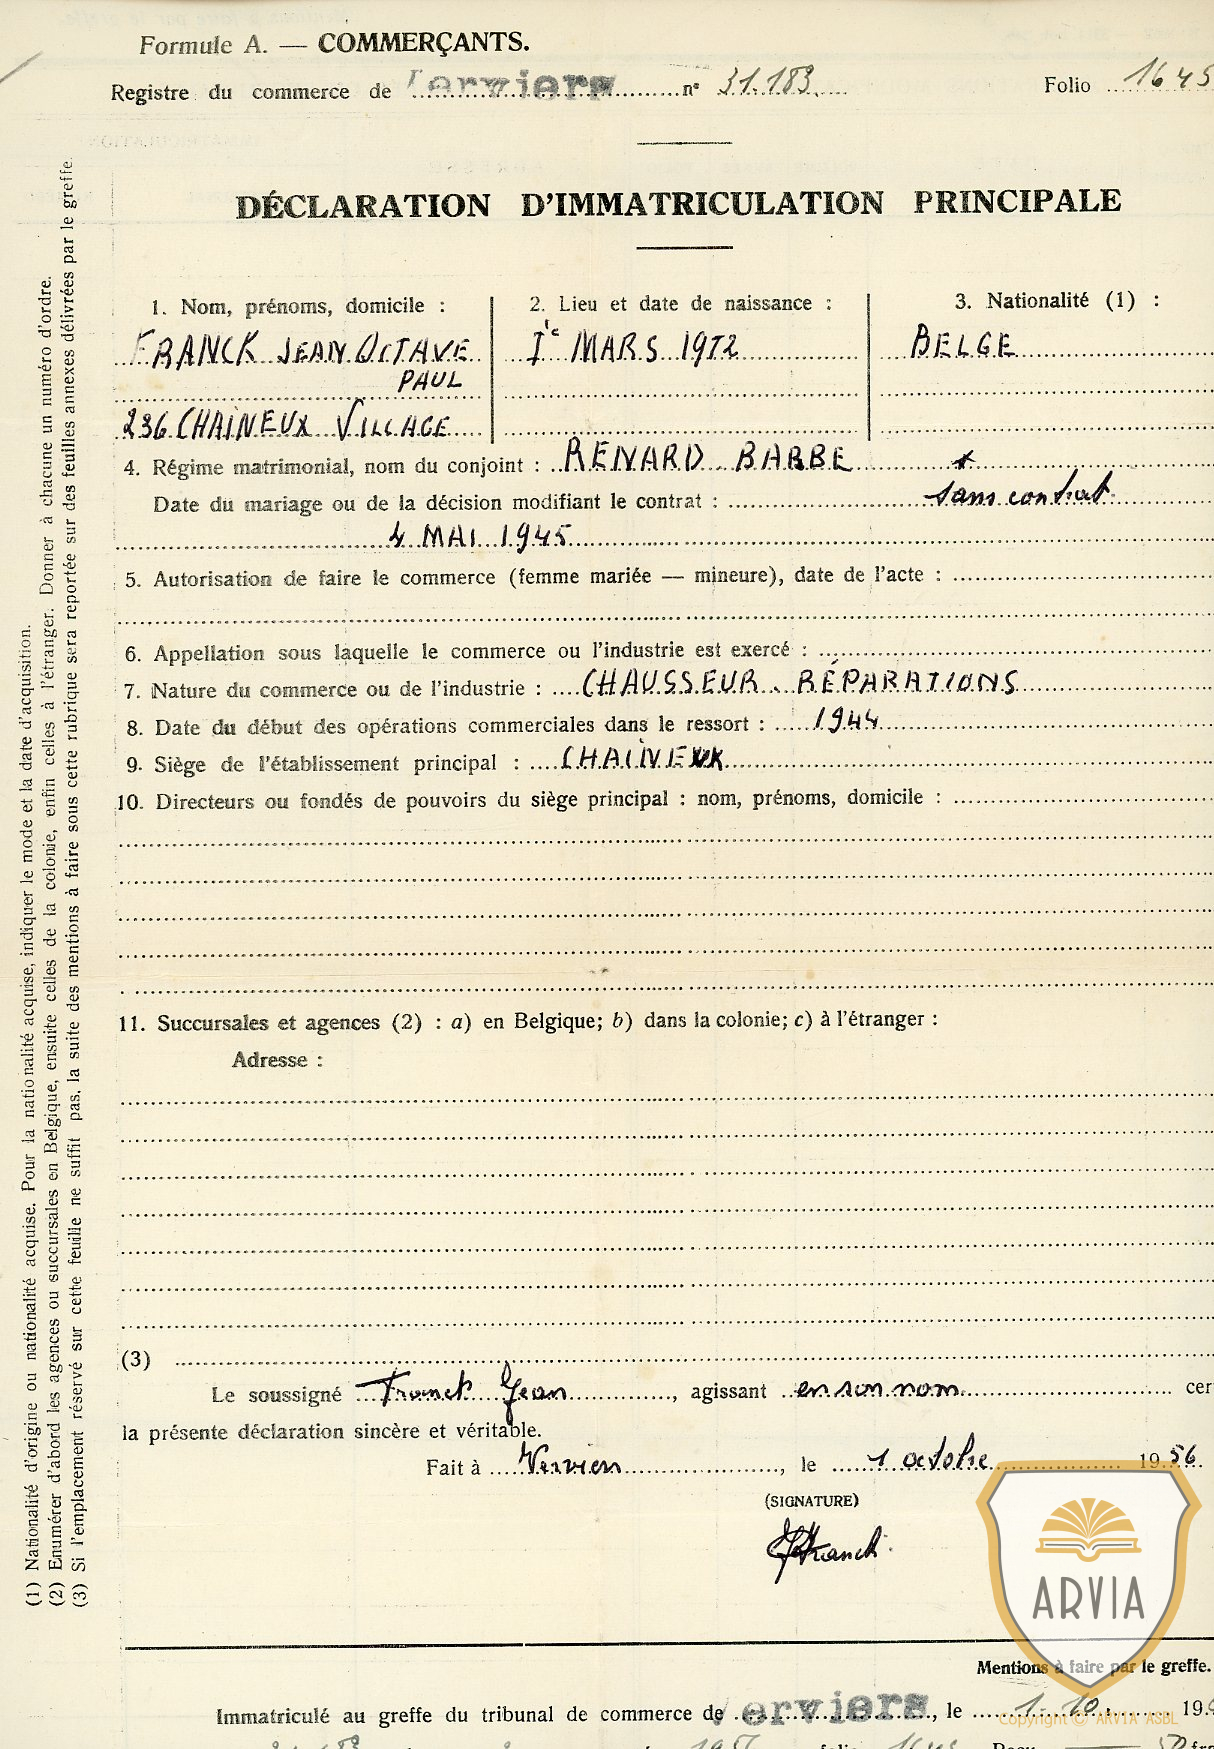 Formule A. — COMMERÇANTS.
Registre du commerce de Verviers n° 31.183. Folio 1645
DÉCLARATION D'IMMATRICULATION PRINCIPALE
1. Nom, prénoms, domicile : 2. Lieu et date de naissance : 3. Nationalité (1) :
FRANCK JEAN OCTAVE 1er MARS 1912 BELGE
PAUL
236 CHAINEUX VILLAGE
4. Régime matrimonial, nom du conjoint : RENARD BARBE
Date du mariage ou de la décision modifiant le contrat : sans contrat
4 MAI 1945
5. Autorisation de faire le commerce (femme mariée — mineure), date de l'acte :
6. Appellation sous laquelle le commerce ou l'industrie est exercé :
7. Nature du commerce ou de l'industrie : CHAUSSEUR. RÉPARATIONS
8. Date du début des opérations commerciales dans le ressort : 1944
9. Siège de l'établissement principal : CHAINEUX
10. Directeurs ou fondés de pouvoirs du siège principal : nom, prénoms, domicile :
11. Succursales et agences (2) : a) en Belgique; b) dans la colonie; c) à l'étranger :
Adresse :
(3)
Le soussigné Franck Jean, agissant en son nom cer
la présente déclaration sincère et véritable.
Fait à Verviers, le 1 octobre 1956
(SIGNATURE)
JFranck
Mentions à faire par le greffe.
Immatriculé au greffe du tribunal de commerce de Verviers, le 1.10. 19
(1) Nationalité d'origine ou nationalité acquise. Pour la nationalité acquise, indiquer le mode et la date d'acquisition.
(2) Enumérer d'abord les agences ou succursales en Belgique, ensuite celles de la colonie, enfin celles à l'étranger. Donner à chacune un numéro d'ordre.
(3) Si l'emplacement réservé sur cette feuille ne suffit pas, la suite des mentions à faire sous cette rubrique sera reportée sur des feuilles annexes délivrées par le greffe.
ARVIA
Copyright © ARVIA ASBL